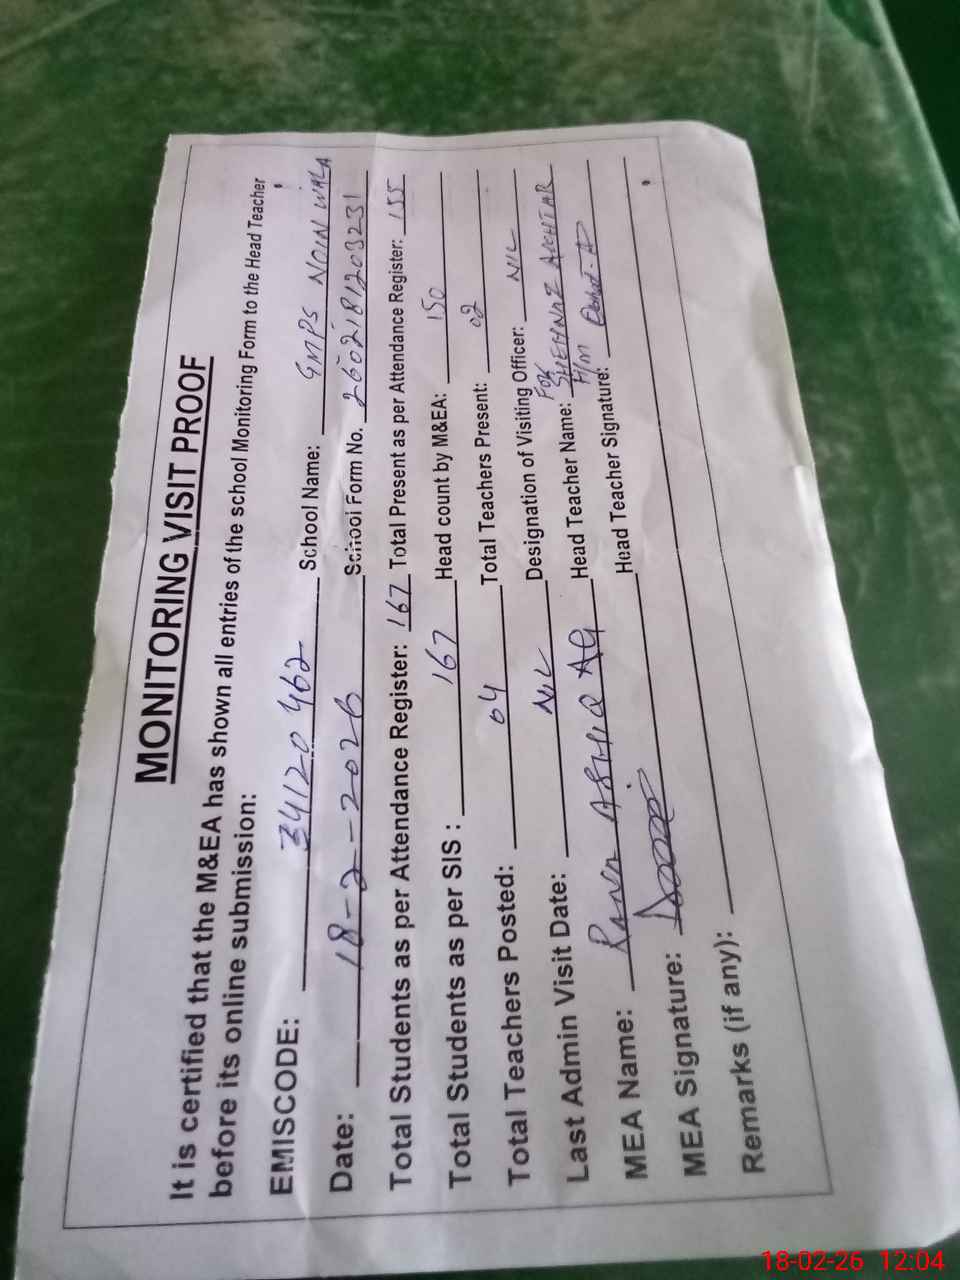 MONITORING VISIT PROOF
It is certified that the M&EA has shown all entries of the school Monitoring Form to the Head Teacher
before its online submission:
EMISCODE: 34120462 School Name: GMPS NOIN WALA
Date: 18-2-2026 School Form No. 2602181203231
Total Students as per Attendance Register: 167 Total Present as per Attendance Register: 155
Total Students as per SIS: 167 Head count by M&EA: 150
Total Teachers Posted: 04 Total Teachers Present: 02
Last Admin Visit Date: NIL Designation of Visiting Officer: NIL
MEA Name: Rana ASHIQ Head Teacher Name: FOR SHEHNAZ AKHTAR
MEA Signature: Head Teacher Signature: H/M
Remarks (if any):
18-02-26 12:04